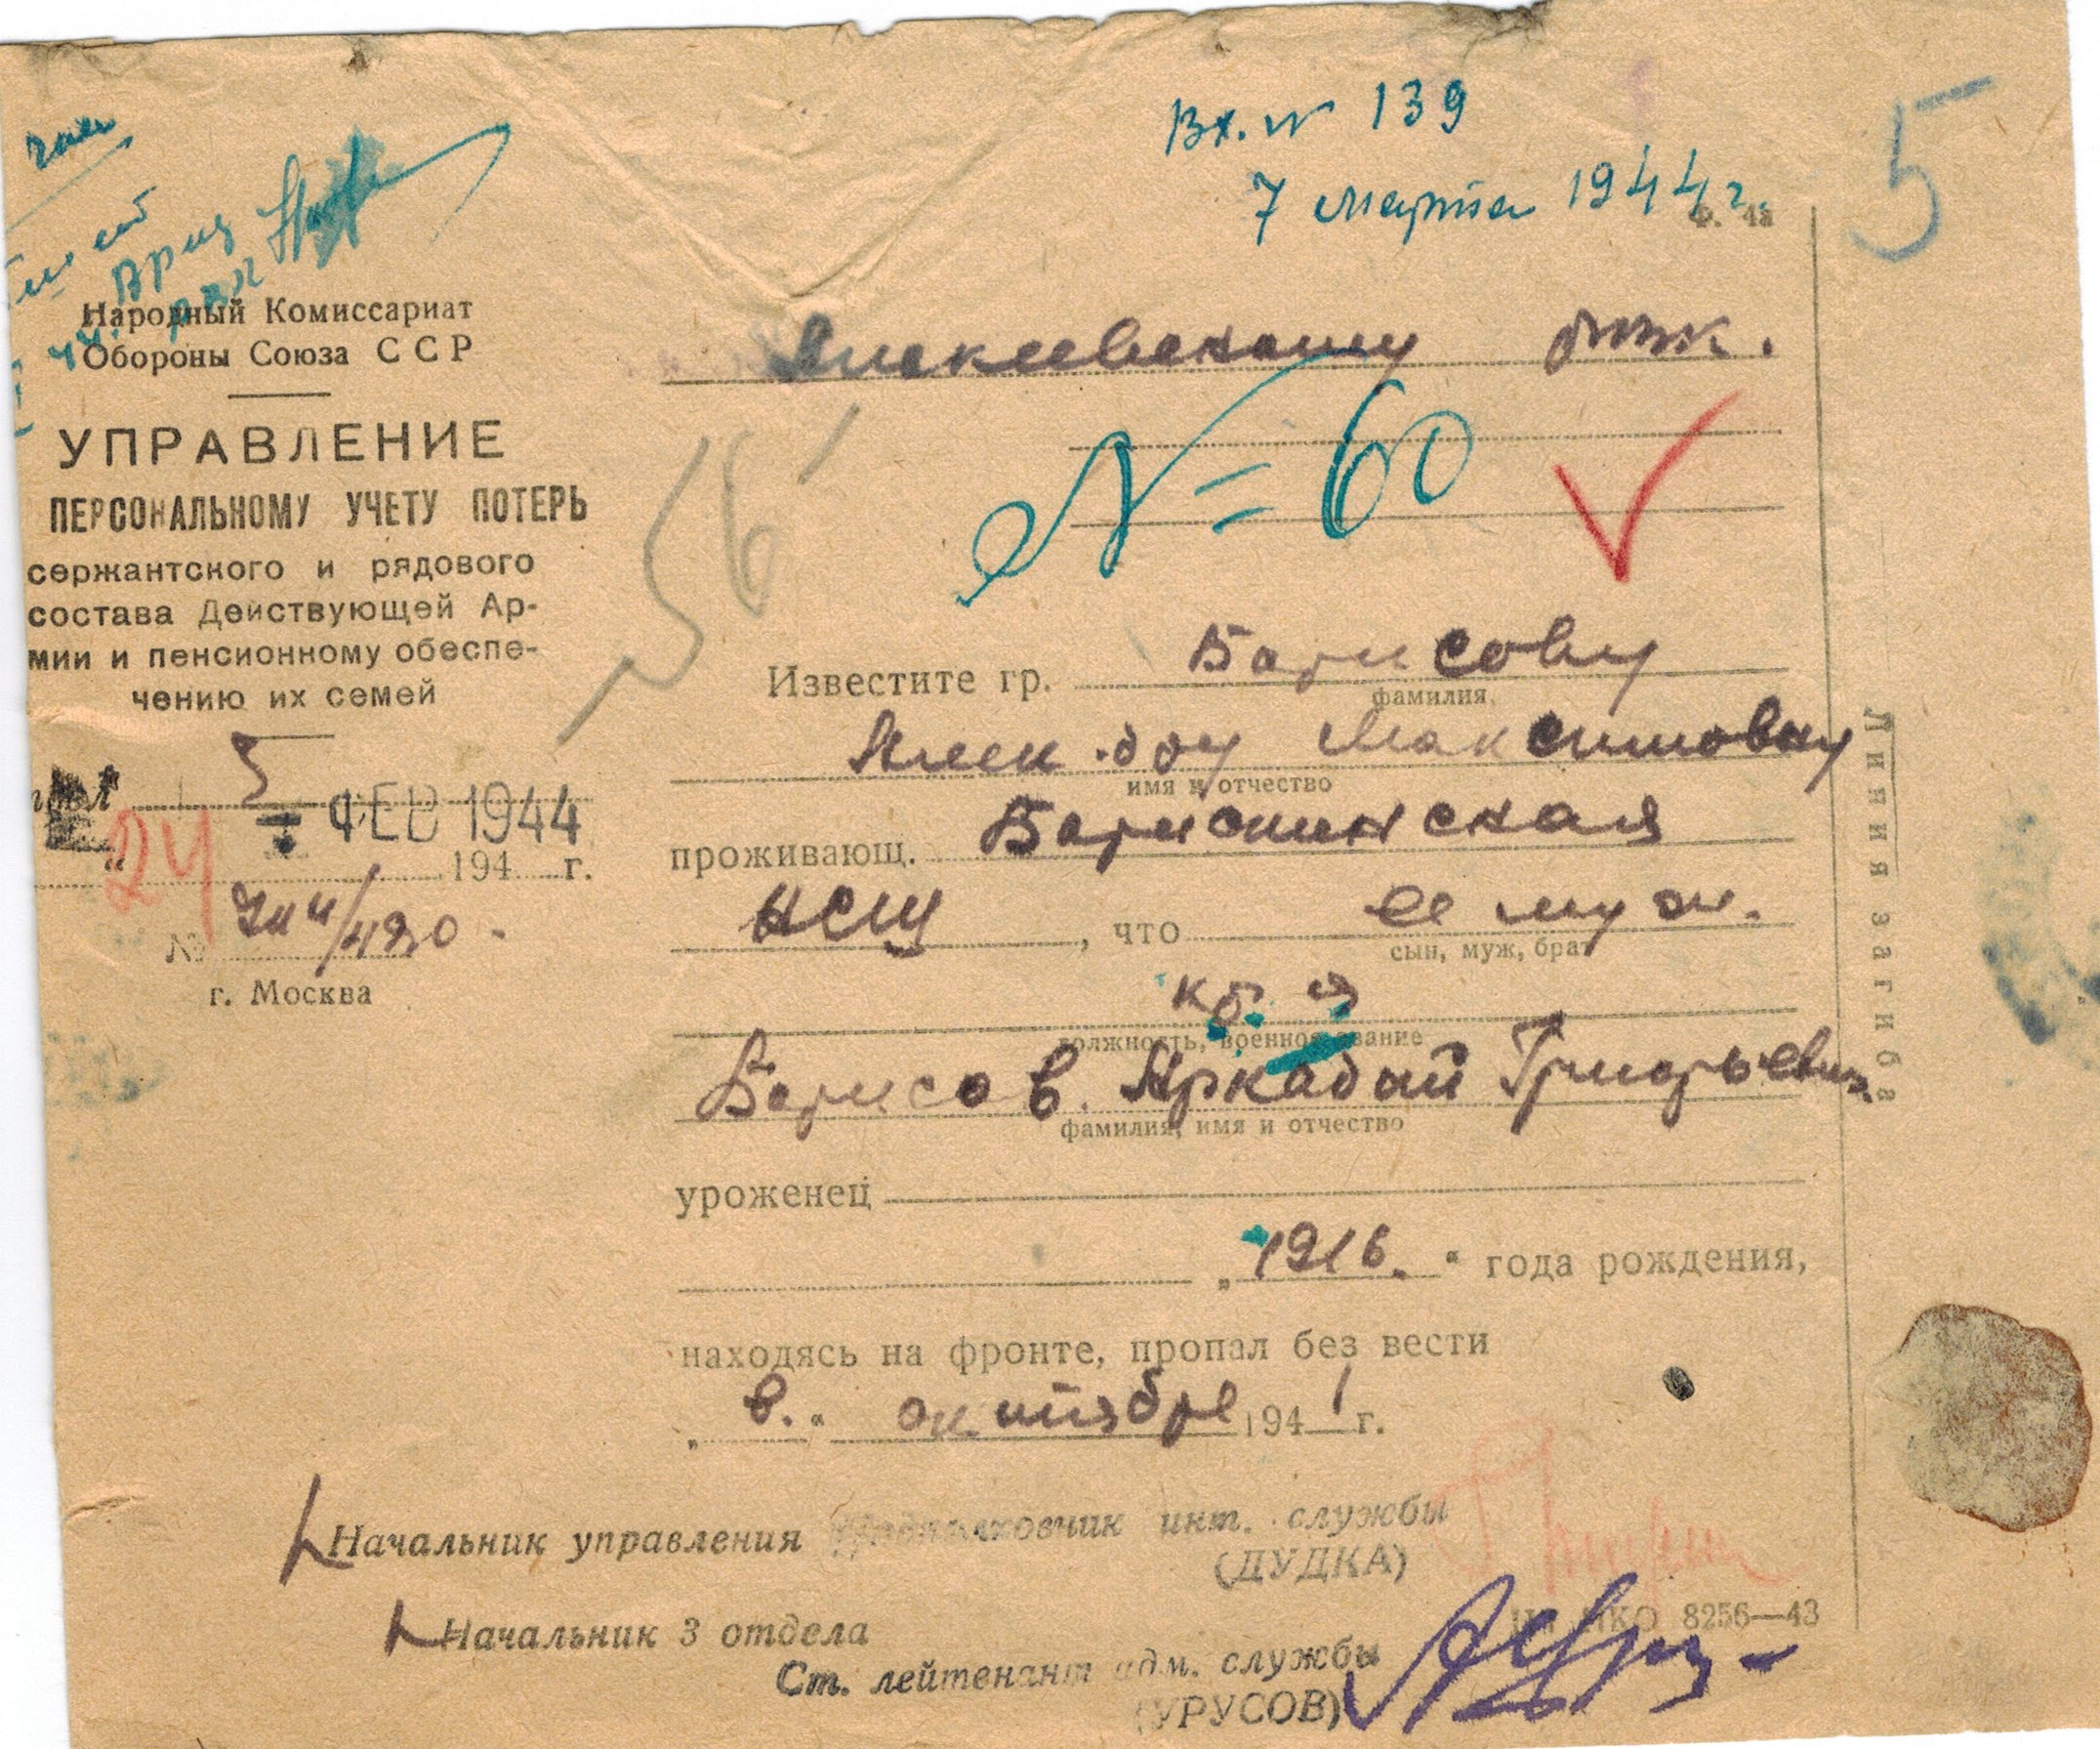 Вх. № 139
7 марта 1944 г.
Ф. 4а
5
Врид
Народный Комиссариат
Обороны Союза ССР
УПРАВЛЕНИЕ
ПЕРСОНАЛЬНОМУ УЧЕТУ ПОТЕРЬ
сержантского и рядового
состава Действующей Ар-
мии и пенсионному обеспе-
чению их семей
5
- ФЕВ 1944
24 194 г.
№
г. Москва
Алексеевскому рвк.
56
№ = 60
Известите гр. Борисову
фамилия
Алек-дру Максимовну
имя и отчество
проживающ. Борискинская
, что ее муж.
сын, муж, брат
должность, военное звание
Борисов. Аркадий Григорьевич
фамилия, имя и отчество
уроженец
„1916.“ года рождения,
находясь на фронте, пропал без вести
„в.“ октябре 1941 г.
Начальник управления Подполковник инт. службы
(ДУДКА)
Начальник 3 отдела
НКО 8256—43
Ст. лейтенант адм. службы
(УРУСОВ)
Линия загиба